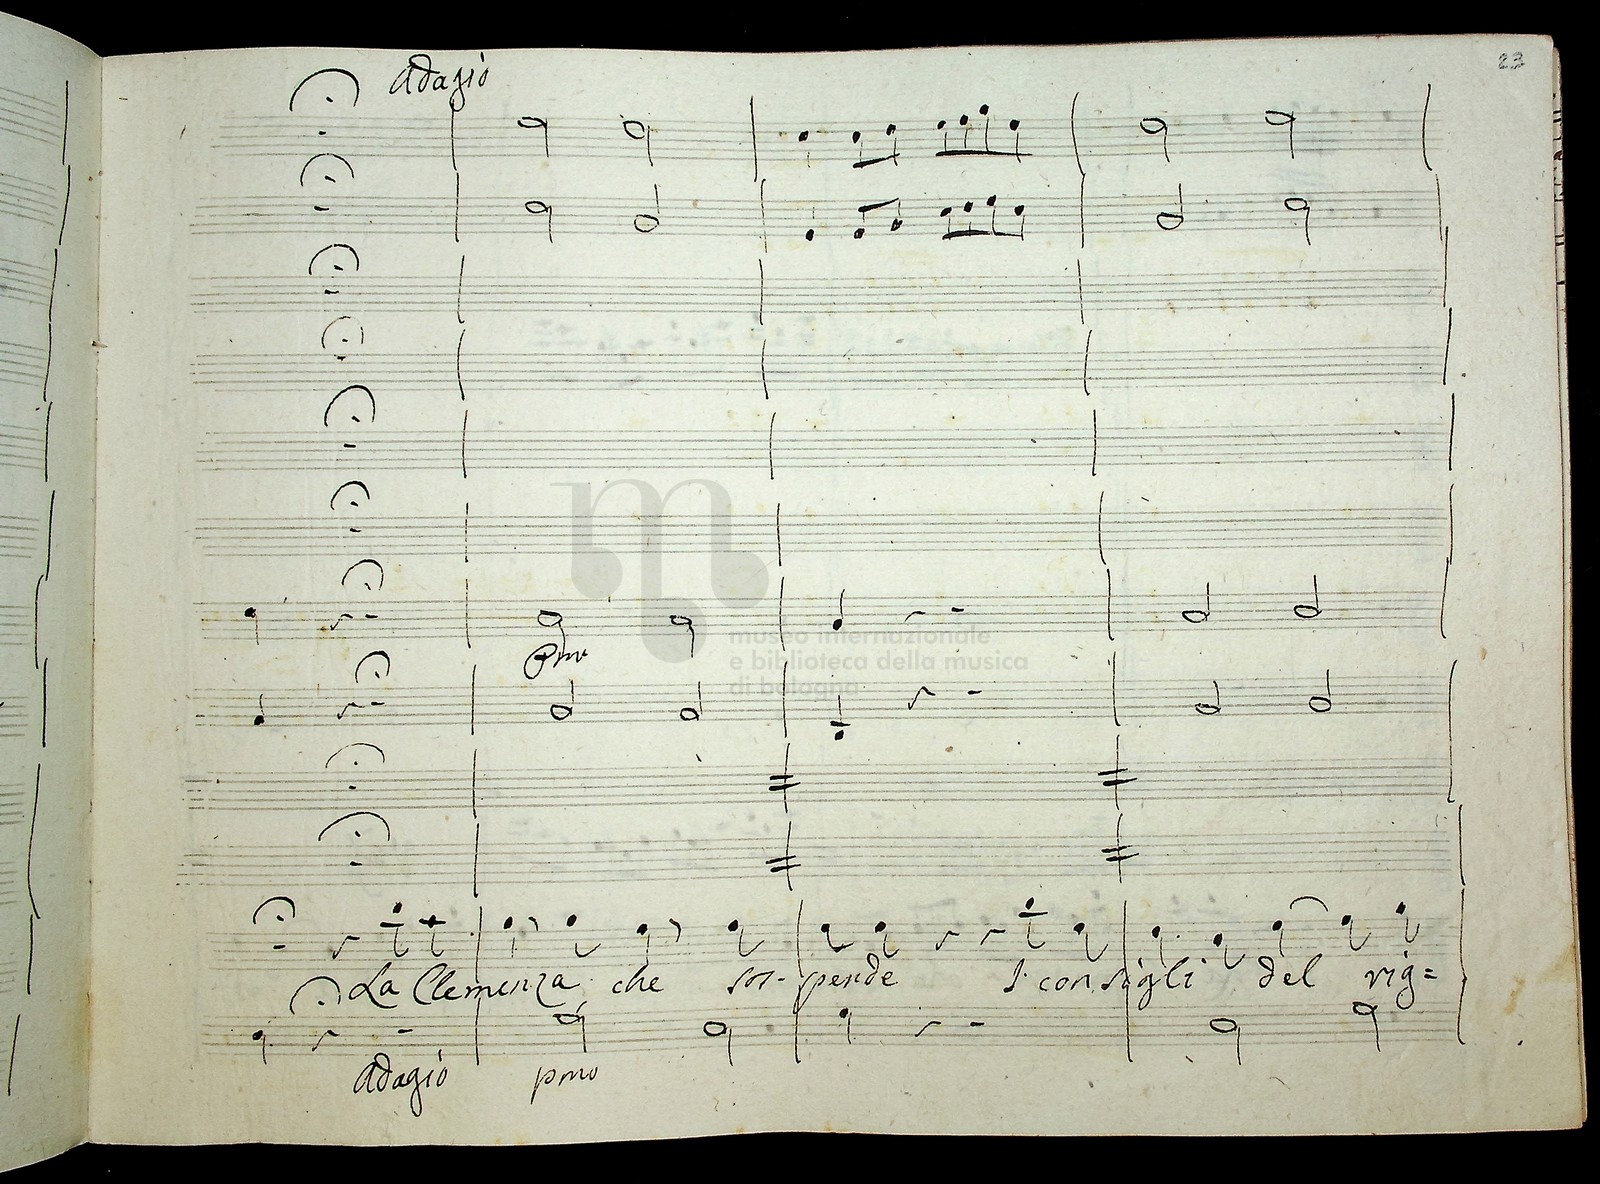 23
Adagio
Pmo
museo internazionale
e biblioteca della musica
di bologna
La Clemenza che sos-pende I consigli del rig=
Adagio pmo